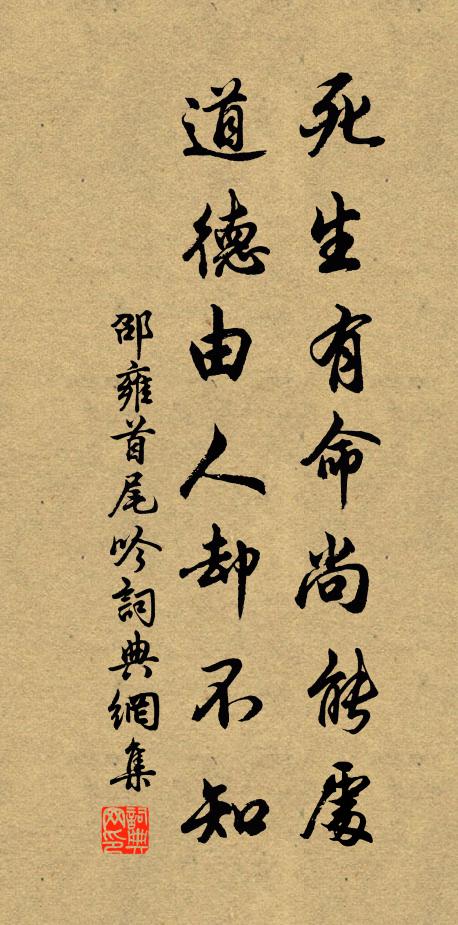 死生有命尚能處
道德由人却不知
邵雍首尾吟詞典網集
詞典網印